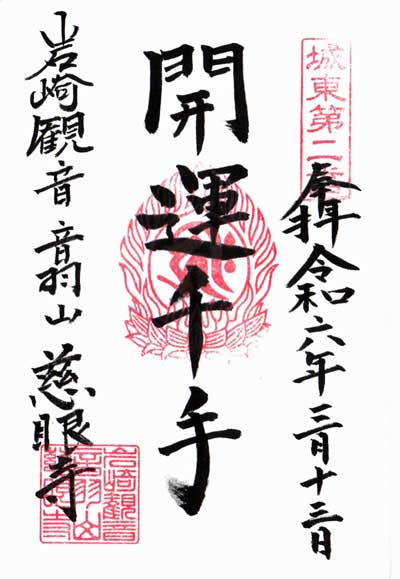 城東第二
奉拝 令和六年三月十三日
開運千手
岩崎観音 音羽山 慈眼寺
岩崎観音
音羽山
慈眼寺